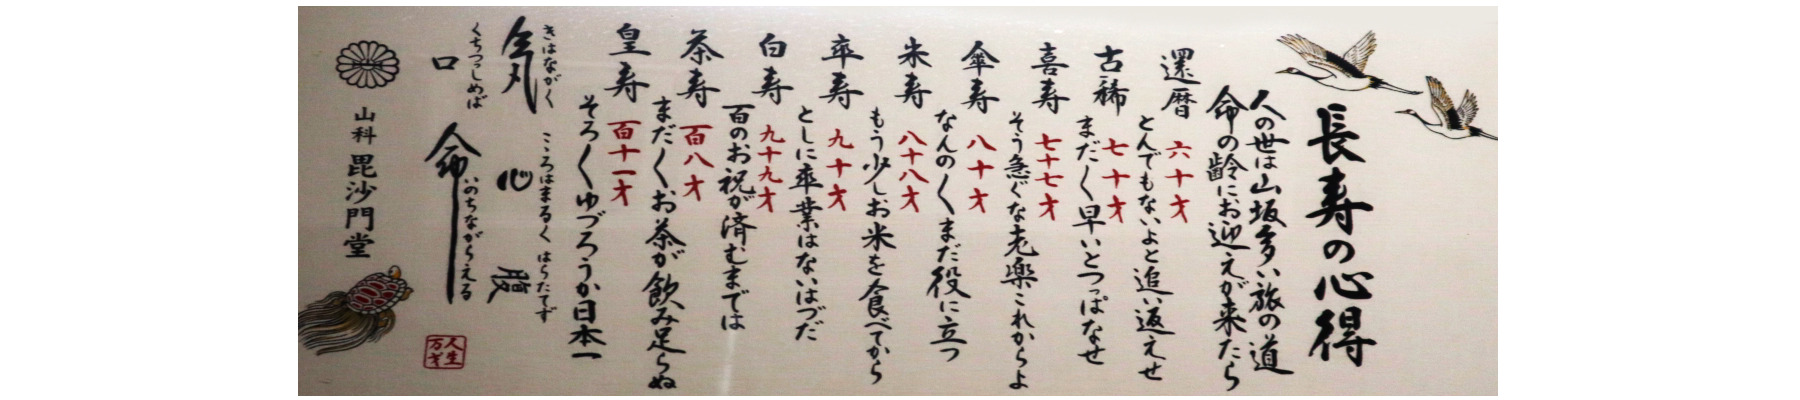 長寿の心得
人の世は山坂多い旅の道
命の齢にお迎えが来たら
還暦 六十才
とんでもないよと追い返えせ
古稀 七十才
まだ〱早いとつっぱなせ
喜寿 七十七才
そう急ぐな老楽これからよ
傘寿 八十才
なんの〱まだ役に立つ
米寿 八十八才
もう少しお米を食べてから
卒寿 九十才
としに卒業はないはづだ
白寿 九十九才
百のお祝が済むまでは
茶寿 百八才
まだ〱お茶が飲み足らぬ
皇寿 百十一才
そろ〱ゆづろうか日本一
きはながく こころはまるく はらたてず
気 心 腹
くちつつしめば いのちながらえる
口 命
山科 毘沙門堂
人生
万才